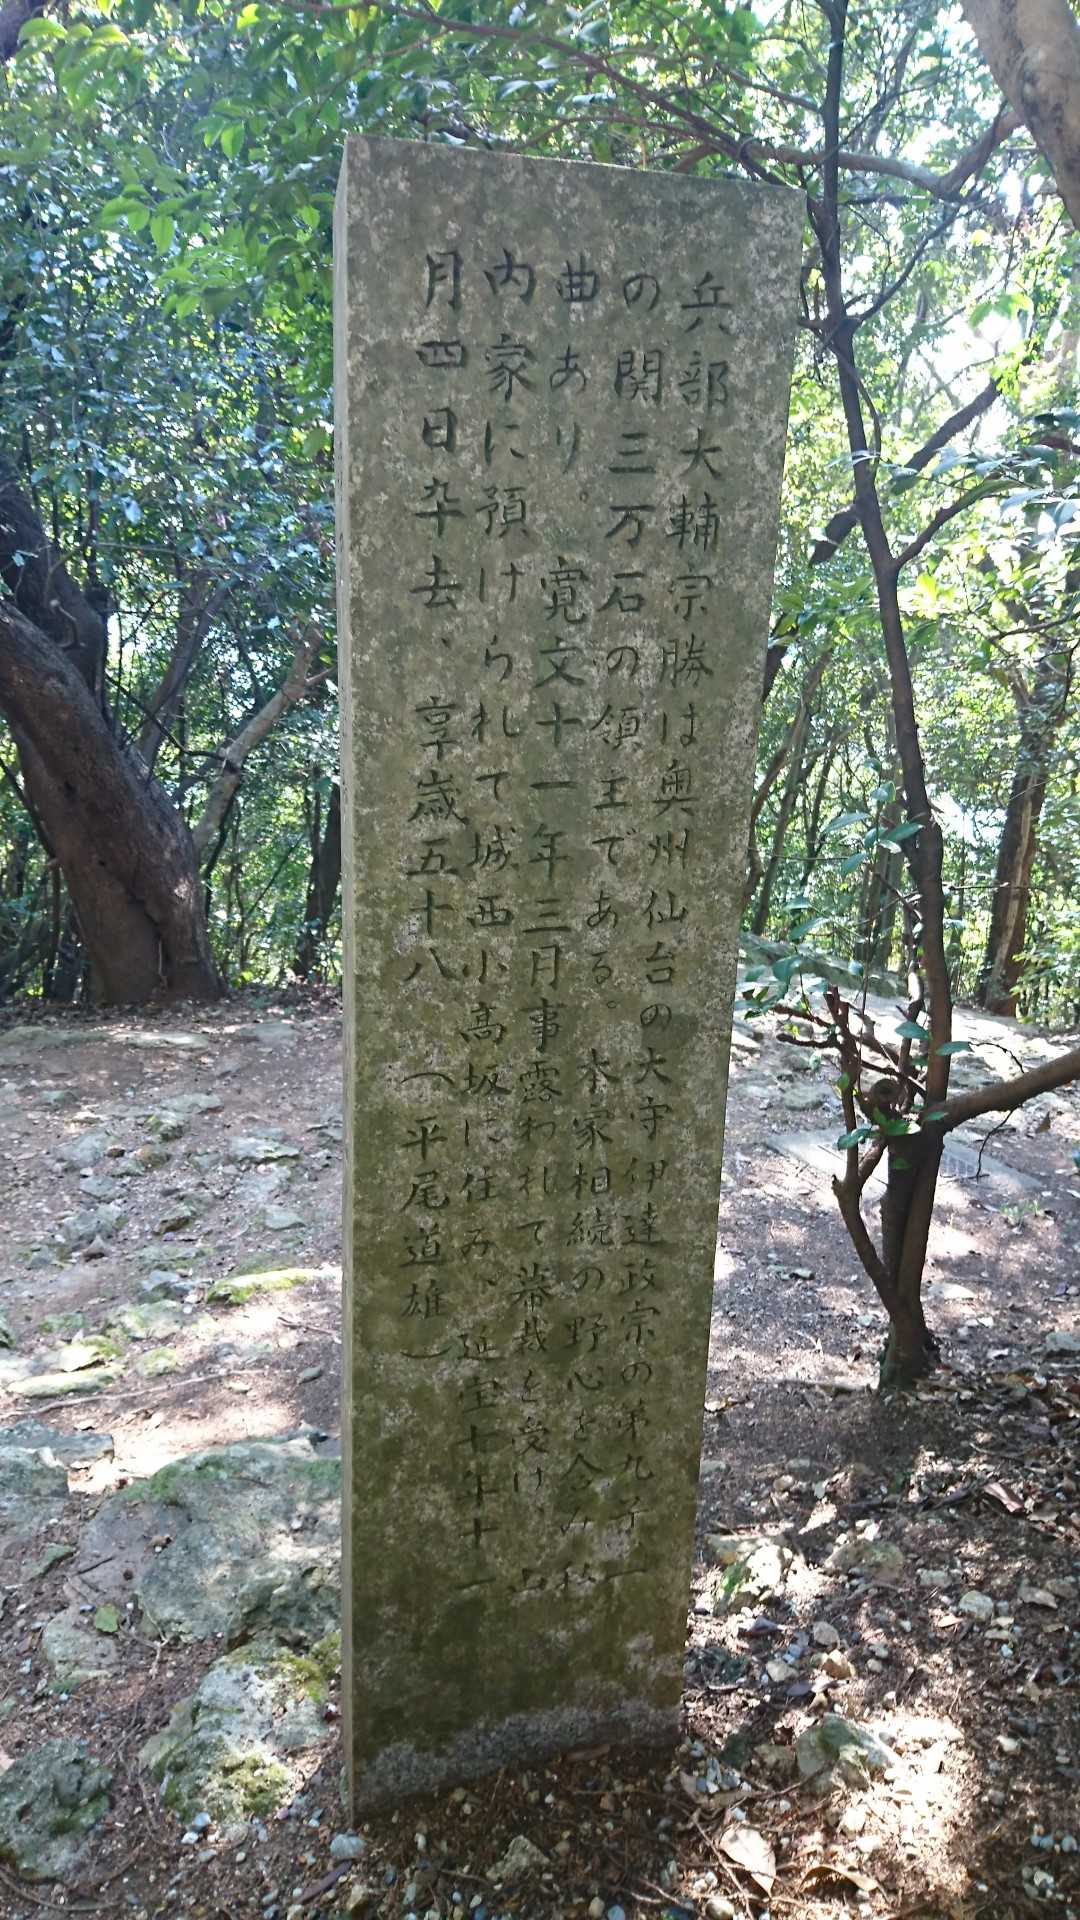 兵部大輔宗勝は奥州仙台の大守伊達政宗の第九子一
の関三万石の領主である。本家相続の野心を含み私
曲あり。寛文十一年三月事露われて幕裁を受け、山
内家に預けられて城西小高坂に住み、延宝七年十一
月四日卒去、享歳五十八（平尾道雄）